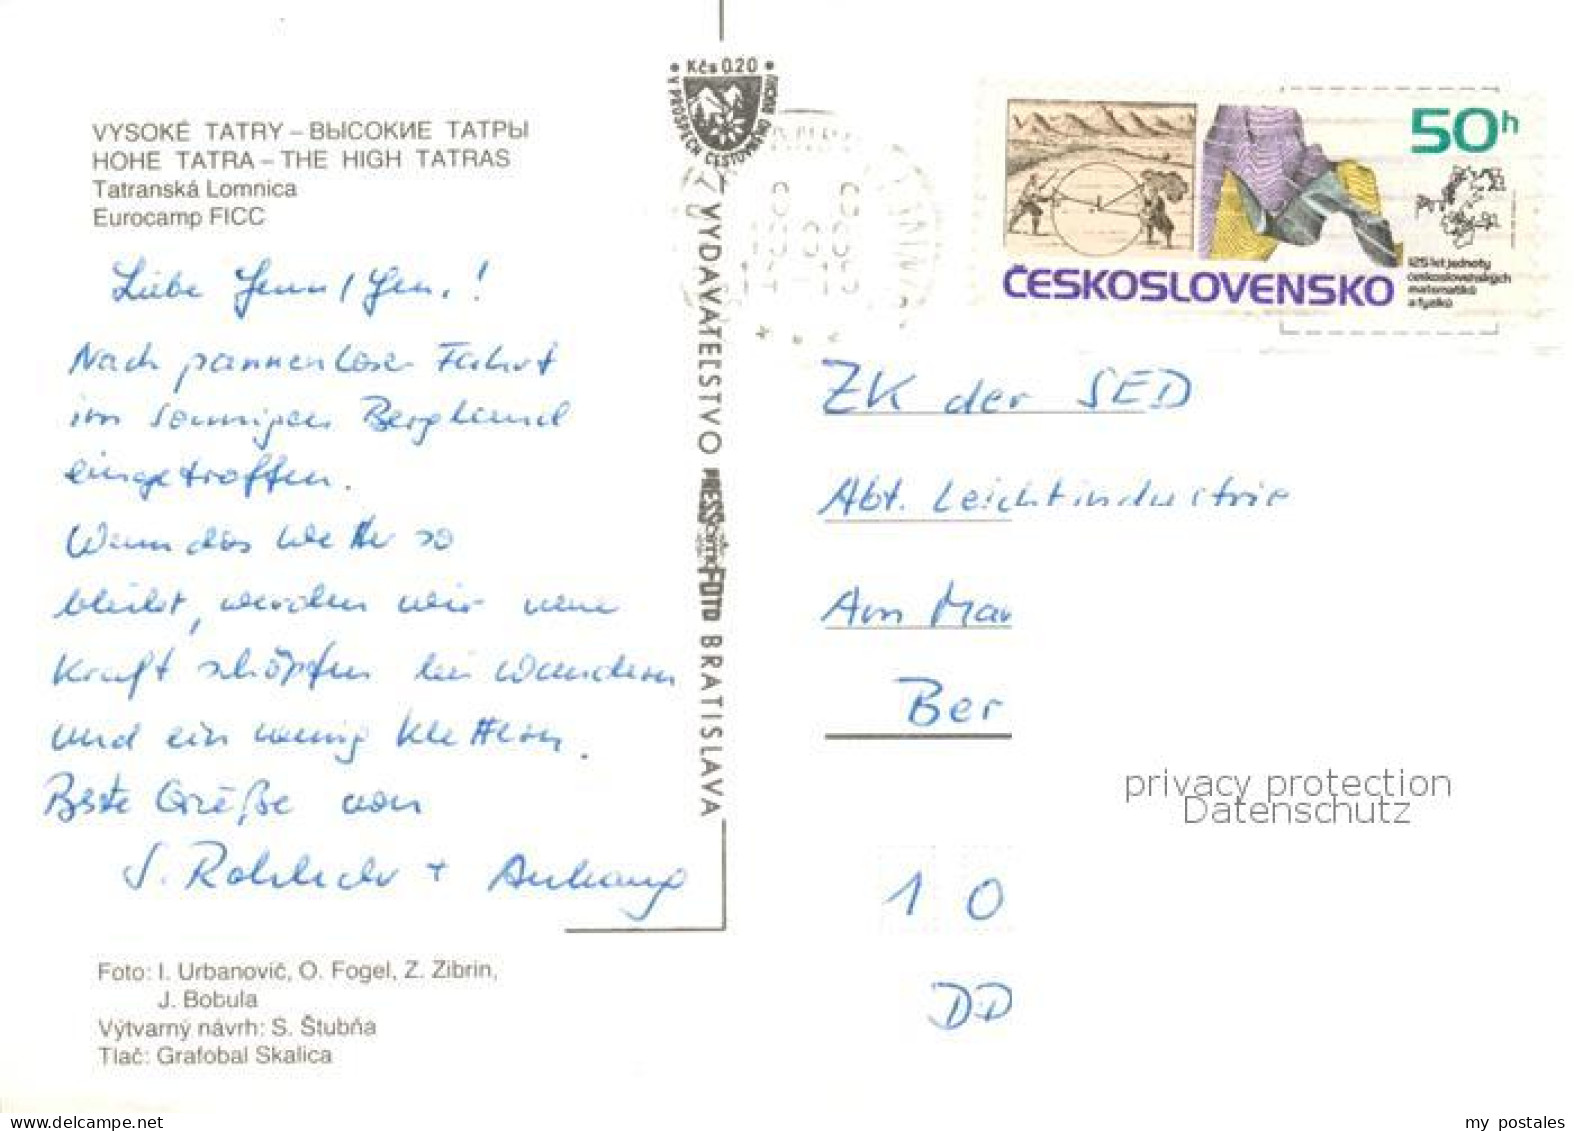 VYSOKÉ TATRY – ВЫСОКИЕ ТАТРЫ
HOHE TATRA – THE HIGH TATRAS
Tatranská Lomnica
Eurocamp FICC
Liebe
Nach pannenloser Fahrt
im sonnigen Bergland
eingetroffen.
Wenn das Wetter so
bleibt, werden wir neue
Kraft schöpfen bei Wandern
und ein wenig Klettern.
Beste Grüße von
S. + Anhang
Foto: I. Urbanovič, O. Fogel, Z. Zibrin,
J. Bobula
Výtvarný návrh: S. Štubňa
Tlač: Grafobal Skalica
• Kčs 0.20 •
V PROSPECH CESTOVNÉHO RUCHU
VYDAVATEĽSTVO PRESSFOTO BRATISLAVA
50h
125 let jednoty
československých
matematiků
a fyziků
ČESKOSLOVENSKO
ZK der SED
Abt. Leichtindustrie
Am Mar
Ber
privacy protection
Datenschutz
1 0
DD
my postales